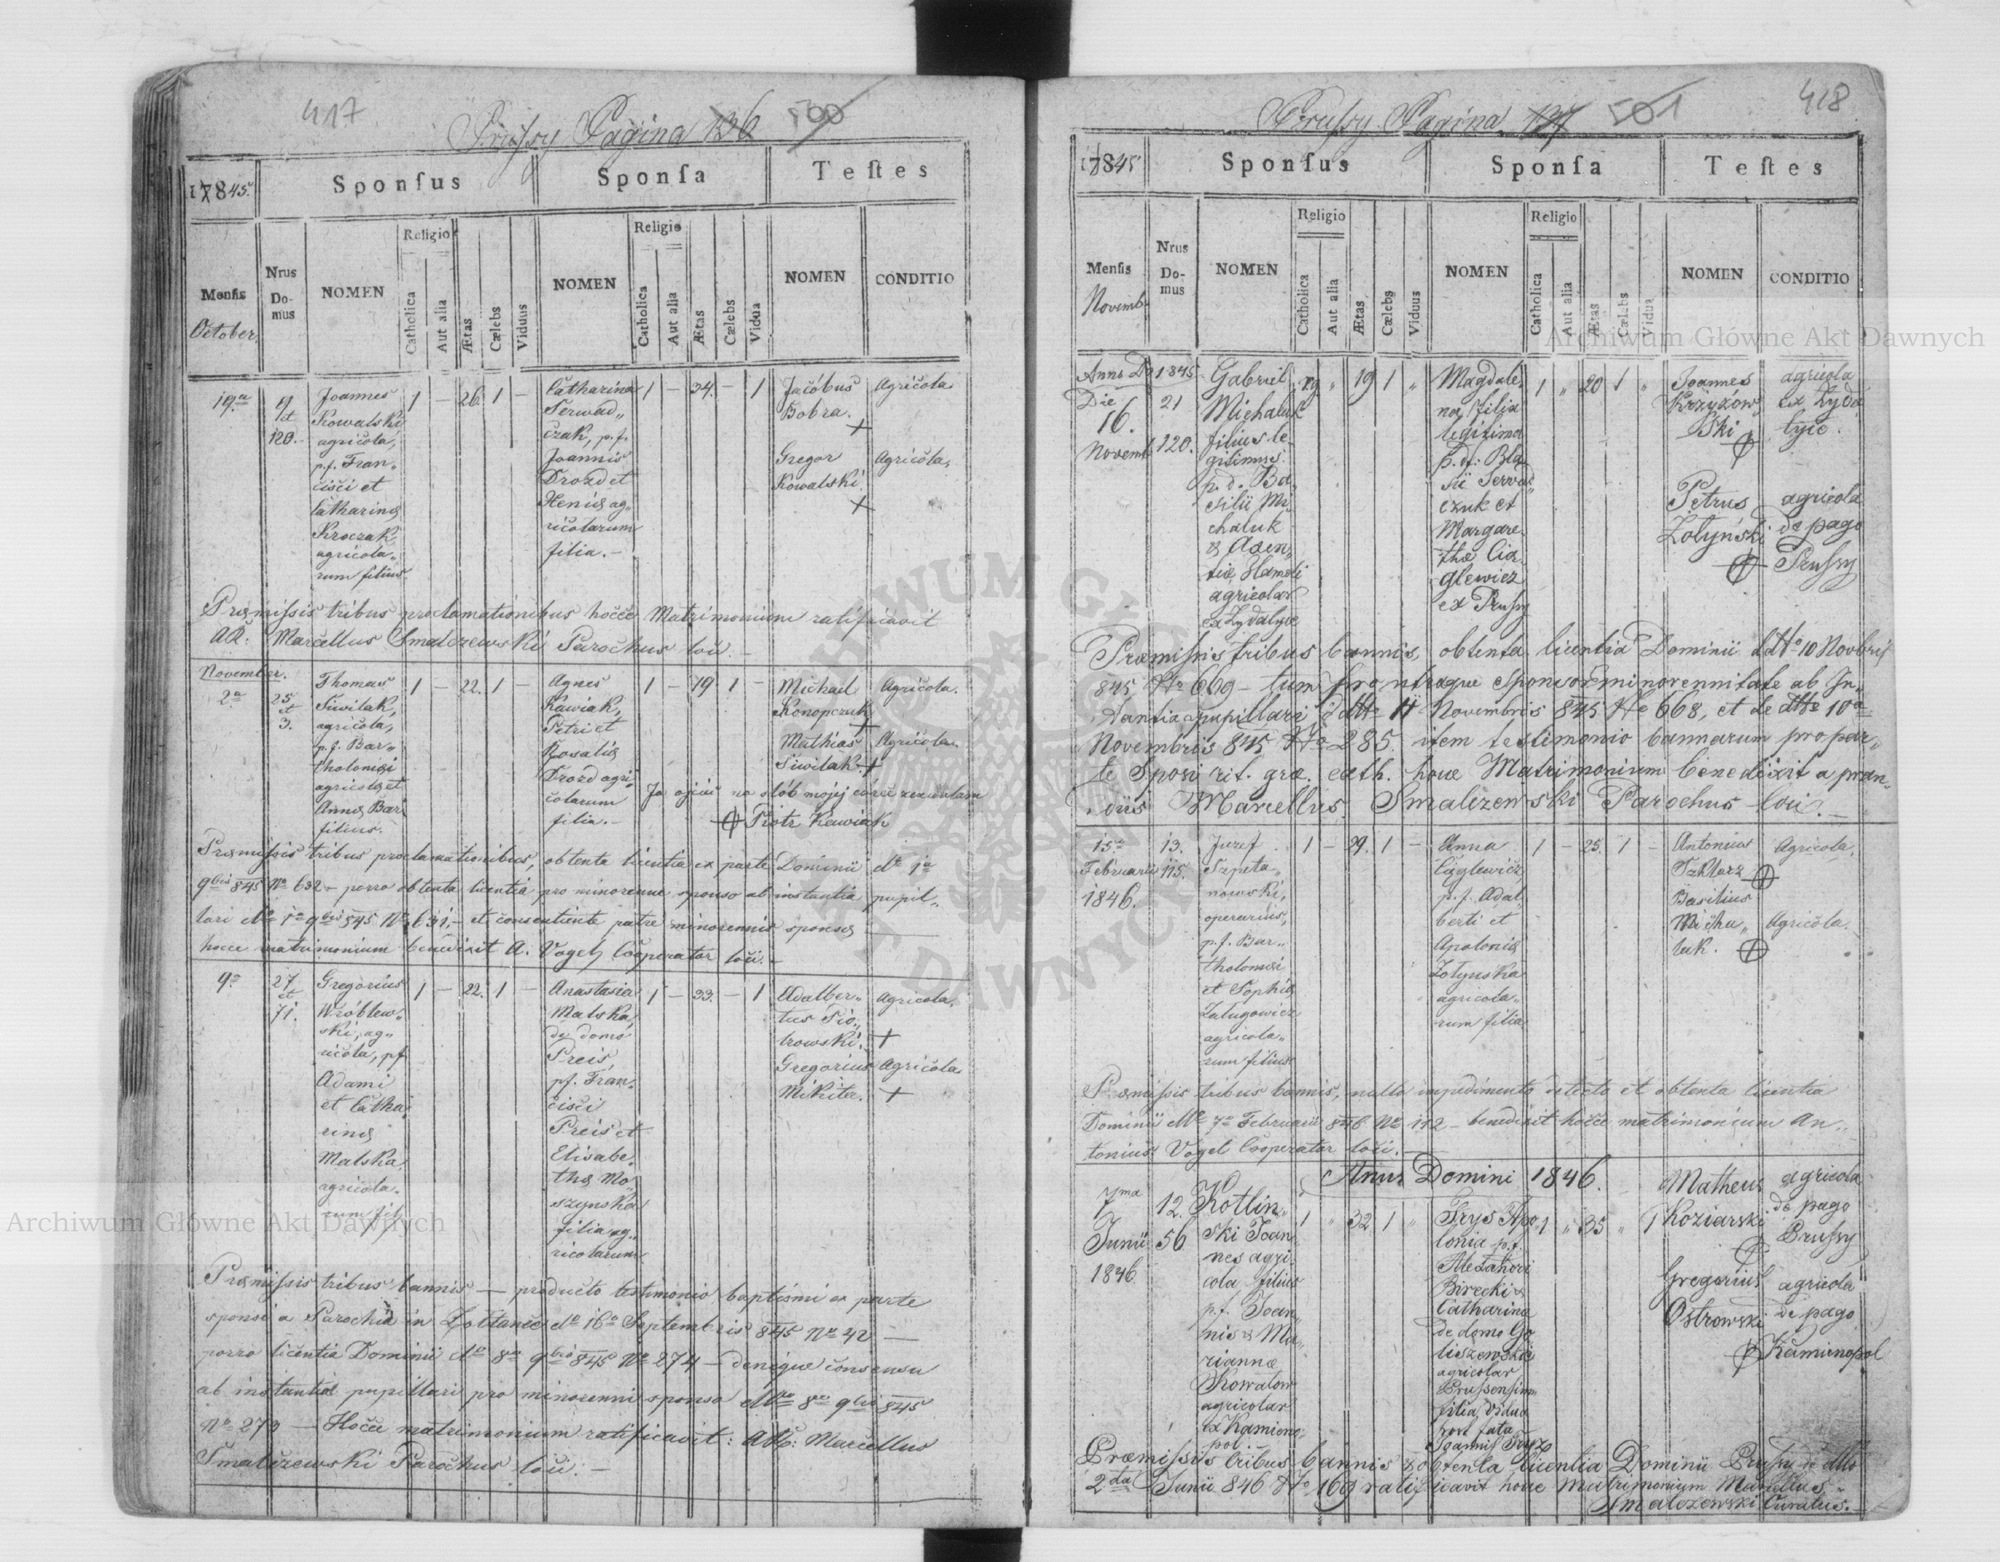 417
Prussy Pagina 126 500
17845.
Sponsus
Sponsa
Testes
Mensis
October.
Nrus
Do-
mus
NOMEN
Religio
Catholica
Aut alia
Ætas
Cælebs
Viduus
NOMEN
Religio
Catholica
Aut alia
Ætas
Cælebs
Vidua
NOMEN
CONDITIO
19a
9
et
120.
Joannes
Kowalski
agricola,
p.f. Fran-
cisci et
Catharinæ
Kroczak
agricola-
rum filius.
1 – 26. 1 –
Catharina
Serwad„
czak, p.f.
Joannis
Drozd et
Xeniæ ag„
ricolarum
filia. –
1 – 34. – 1
Jacobus
Bobra.
+
Agricola
Gregor
Kowalski.
+
Agricola.
Præmissis tribus proclamationibus hocce Matrimonium ratificavit
AR: Marcellus Smalczewski Parochus loci. –
November.
2a
25
et
3.
Thomas
Siwilak,
agricola,
p.f. Bar-
tholomæi
agricolæ et
Annæ Bar
filius.
1 – 22. 1 –
Agnes
Kawiak,
Petri et
Rosaliæ
Drozd agri
colarum
filia. –
1 – 19. 1 –
Michail
Konopczuk
+
Agricola.
Mathias
Siwilak +
Agricola.
Ja ojciec na slób mojej córce zezwalam
Piotr Kawiak
Præmissis tribus proclamationibus, obtenta licentia ex parte Dominii dto 1a
9bris 845 No 632 – porro obtenta licentia pro minorenne sponso ab instantia pupil-
lari dto 1a 9bris 845 No 631, – et consentiente patre minorennis sponsæ
hocce matrimonium benedixit A. Vogel Cooperator loci. –
9a
27
et
71.
Gregorius
Wróblew-
ski, ag-
ricola, p.f.
Adami
et Catha
rinæ
Malska
agricola-
rum fil
1 – 22. 1 –
Anastasia
Malska,
de domo
Preis
p.f. Fran-
cisci
Preis et
Elisabe-
thæ Mo-
szynska
filia ag„
ricolarum
1 – 33. – 1
Adalber-
tus Pio-
trowski. +
Agricola.
Gregorius
Mikita. +
Agricola
Præmissis tribus bannis – producto testimonio baptismi ex parte
sponsi a Parochia in Zoltance dto 16a Septembris 845 No 42 –
porro licentia Dominii dto 8a 9bris 845 No 274 – denique consensu
ab instantia pupillari pro minorenni sponso dto 8a 9bris 845
No 273 – Hocce matrimonium ratificavit: AR: Marcellus
Smalczewski Parochus loci. –
418
Prussy Pagina 127 501
17845
Sponsus
Sponsa
Testes
Mensis
Novemb.
Nrus
Do-
mus
NOMEN
Religio
Catholica
Aut alia
Ætas
Cælebs
Viduus
NOMEN
Religio
Catholica
Aut alia
Ætas
Cælebs
Vidua
NOMEN
CONDITIO
Anno D. 1845
Die
16.
Novemb
21
120.
Gabriel
Michaluk
filius le-
gitimus
p. d. Ba-
silii Mi
chaluk
& Axen-
tiæ Hameli
agricolar
ex Zydatycz
rg „ 19 1 „
Magdale-
na filia
legitima
p. d: Bla
sii Serwad
czuk et
Margare-
thæ Cia
glewicz
ex Prussy
1 „ 20 1 „
Joannes
Krzyzow
Ski
agricola
ex Zyda
tycz.
Petrus
Żołyński
agricola
de pago
Prussy
Præmissis tribus bannis, obtenta licentia Dominii ddto 10 Novbris
845 No 669 – tum pro utraque sponsor minorennitate ab In-
stantia pupillari ddto 11 Novembris 845 No 668, et de dtto 10a
Novembris 845 No 285. item testimonio bannorum pro par-
te Sponsi rit. græ. cath. hocce Matrimonium benedixit a præn-
diis Marcellus Smalizewski Parochus loci. –
15a
Februarii
1846.
13.
115.
Juzef
Szpeta-
nowski,
operarius,
p.f. Bar-
tholomæi
et Sophiæ
Zalugowicz
agricola-
rum filius
1 – 29. 1 –
Anna
Cąglewicz
p.f. Adal-
berti et
Apoloniæ
Żołynska
agricola-
rum filia
1 – 25. 1 –
Antonius
Szklarz
Agricola.
Basilius
Micha„
luk.
Agricola.
Præmissis tribus bannis, nullo impedimento detecto et obtenta licentia
Dominii dto 7a Februarii 846 No 112 – benedixit hocce matrimonium An-
tonius Vogel Cooperator loci. –
Anno Domini 1846.
7ma
Junii
1846
12.
56
Kotlin-
ski Joan
nes agri-
cola filius
p.f. Joan-
nis & Ma-
riannæ
Kowalow
agricolar
ex Kamieno-
pol.
1 „ 32 1 „
Frys Apo
lonia p.f.
Alexandri
Birecki &
Catharina
de domo Go
liszewska
agricolar
Prussensium
filia, vidua
post fata
Joannis Frys
1 „ 35 „ 1
Matheus
Koziarski
agricola
de pago
Prussy
Gregorius
Ostrowski
agricola
de pago
Kamienopol
Præmissis tribus bannis & obtenta licentia Dominii Prussy de dtto
2da Junii 846 No 169 ratificavit hocce Matrimonium Marcellus
Smalczewski Curatus. –
Archiwum Główne Akt Dawnych
Archiwum Główne Akt Dawnych